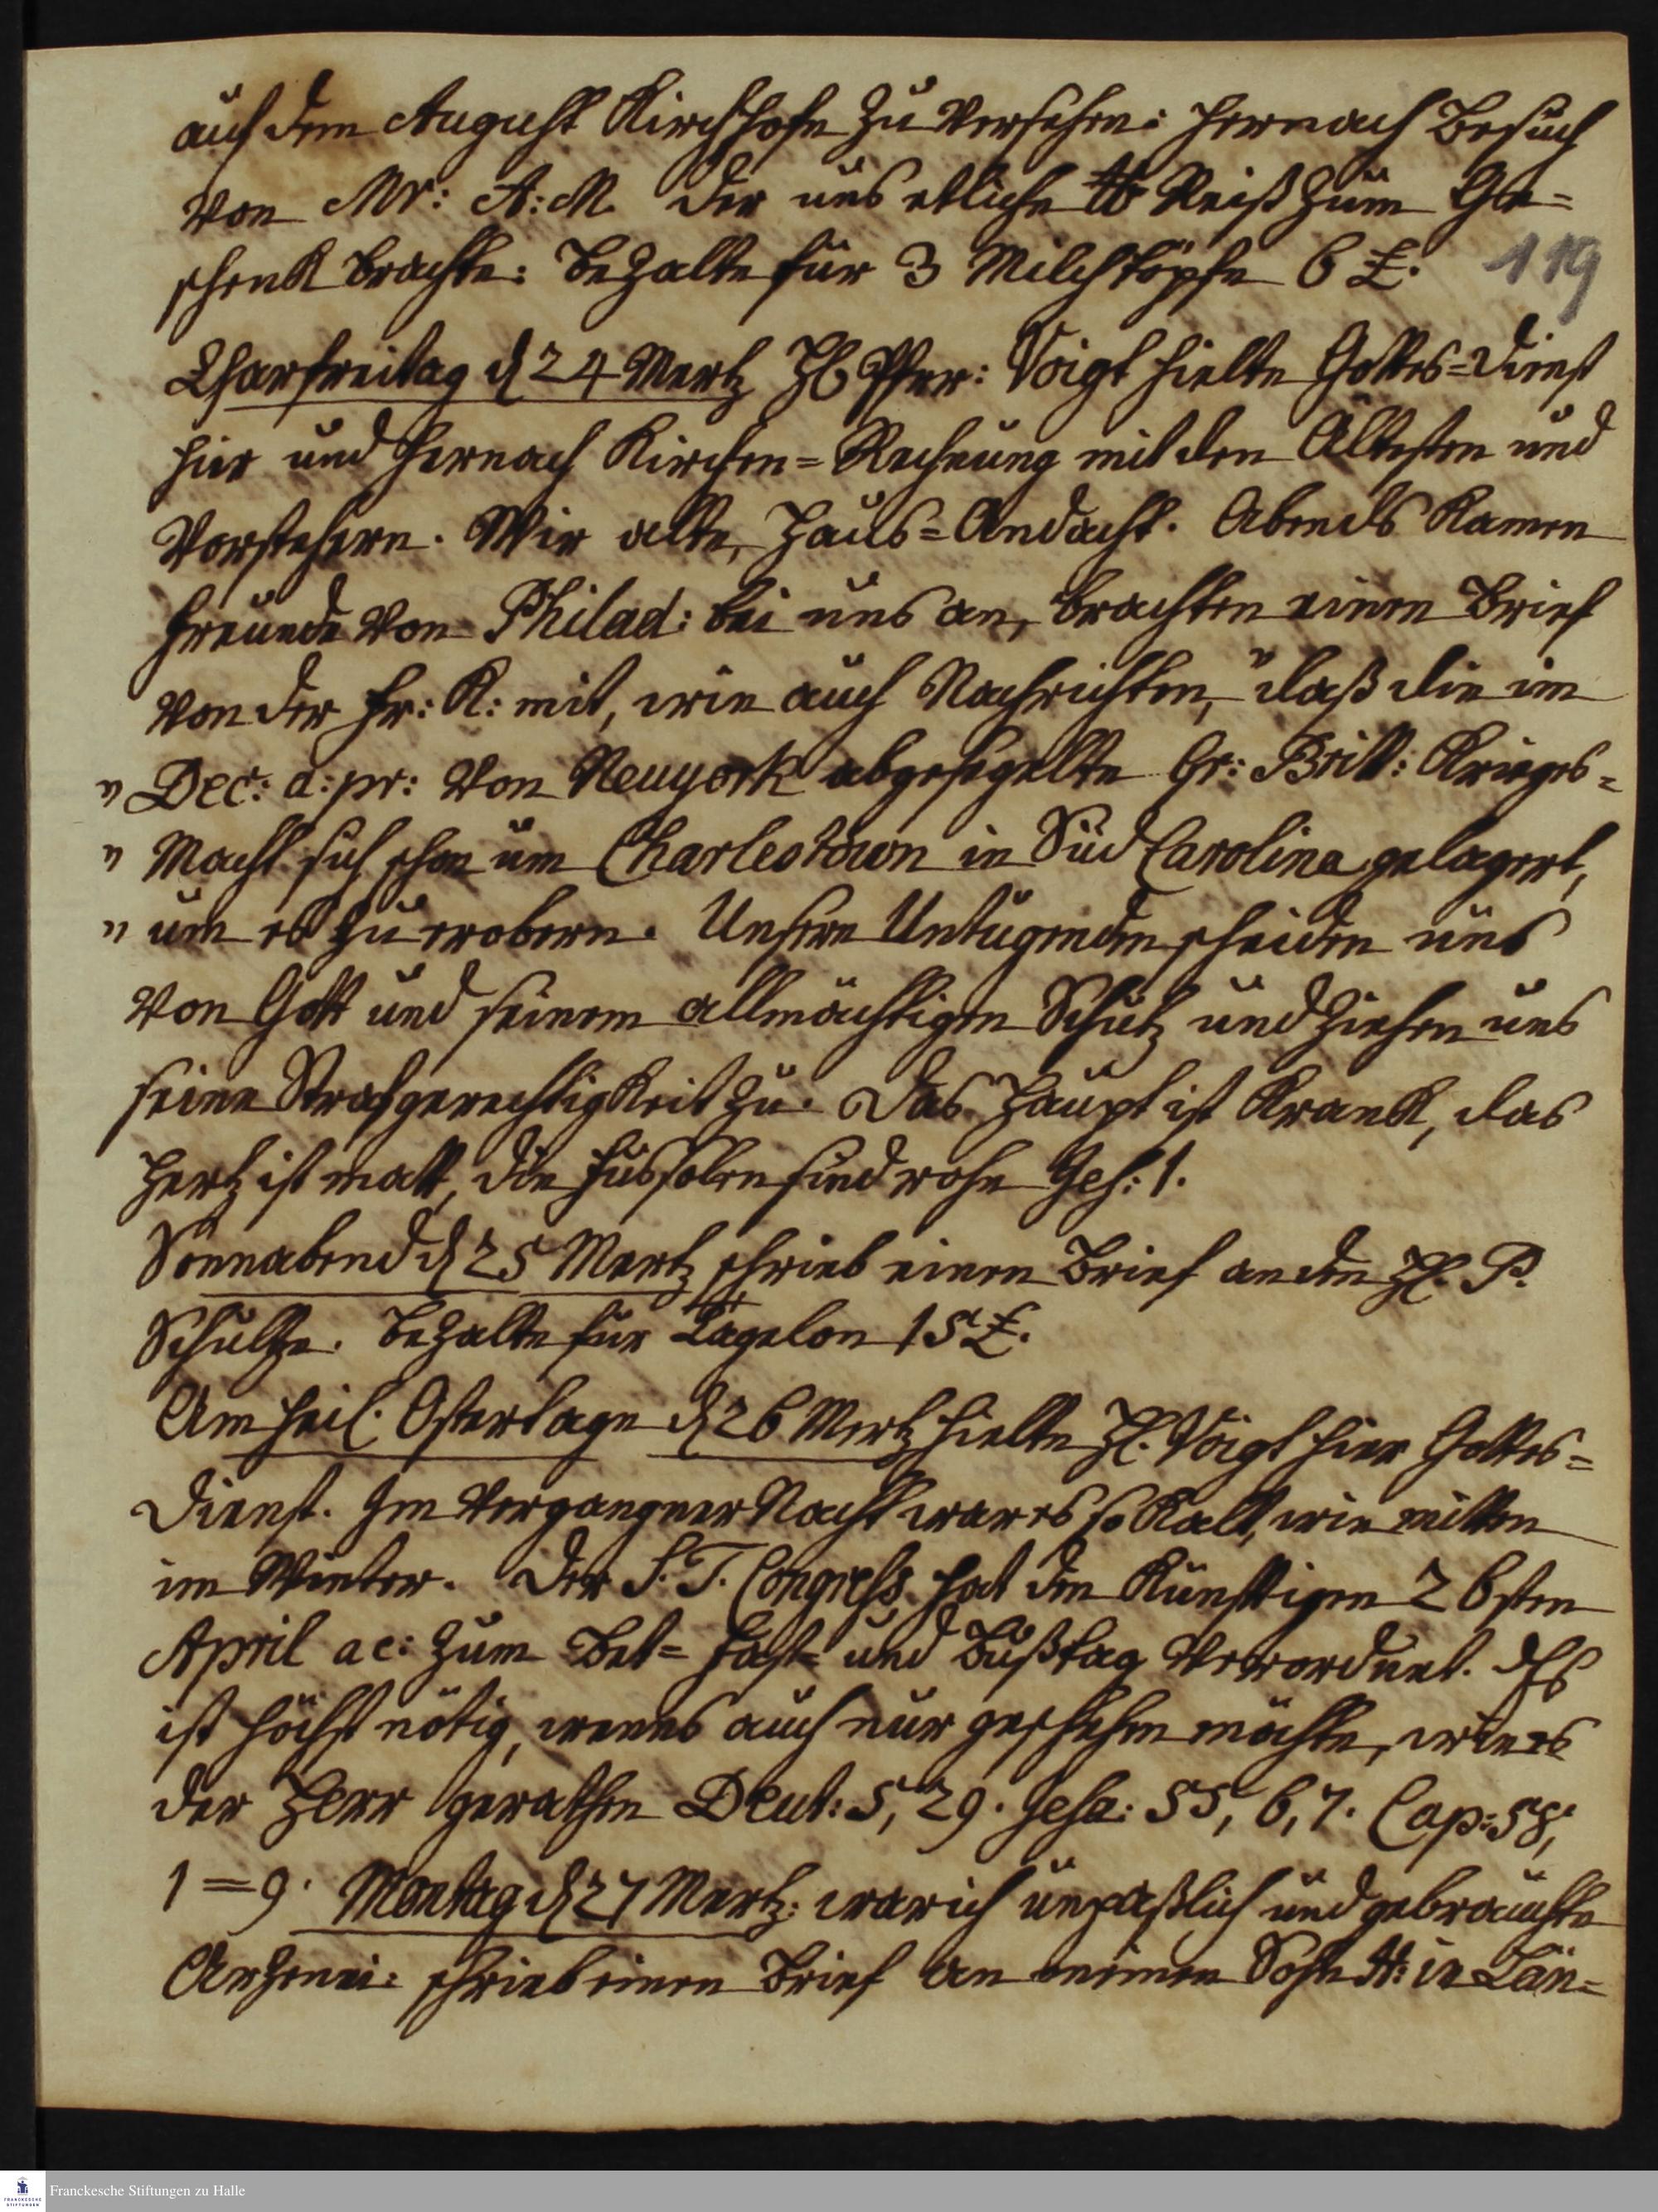 auf dem August Kirchhofe zu versehen: hernach Besuch
von Mr: A: M. der uns etliche ℔ Reiß zum Ge=
schenk brachte: bezalte für 3 Milchtöpfe 6 £.
119
Charfreitag d 24 Mertz H6 Pfar: Voigt hielte Gottes=Dienst
hier und hernach Kirchen=Rechnung mit den Ältesten und
Vorstehern. Wir alte, Haus=Andacht. Abends kamen
Freunde von Philad: bei uns an, brachten einen Brief
von der Fr: K: mit, wie auch Nachrichten, "daß die im
" Dec: a: pr: von Neuyork abgesegelte Gr: Britt: Krieges=
" Macht sich schon um Charlestown in Süd Carolina gelagert,
" um es zu erobern. Unsere Untugenden scheiden uns
von Gott und seinem allmächtigen Schutz und ziehen uns
seine Strafgerechtigkeit zu. Das Haupt ist krank, das
Hertz ist matt, die Fussolen sind wehe Jes: 1.
Sonnabend d 25 Mertz schrieb einen Brief an den H. P.
Schultze. bezalte für Tagelon 15 £.
Am heil. Ostertage d 26 Mertz hielte H. Voigt hier Gottes=
Dienst. Im vergangner Nacht war es so kalt, wie mitten
im Winter. Der S. T. Congress hat den künftigen 26sten
April ac: zum Bet= Fast= und Bußtag verordnet. Es
ist höchst nötig, wenns auch nur geschehen möchte, wie es
der HErr gerathen Deut: 5, 29. Jesa: 55, 6, 7. Cap: 58,
1=9. Montag d 27 Mertz: war ich unpaßlich und gebrauchte
Artzenei: schrieb einen Brief an meinen Sohn H: in Lan=
Franckesche Stiftungen zu Halle
FRANCKESCHE
STIFTUNGEN